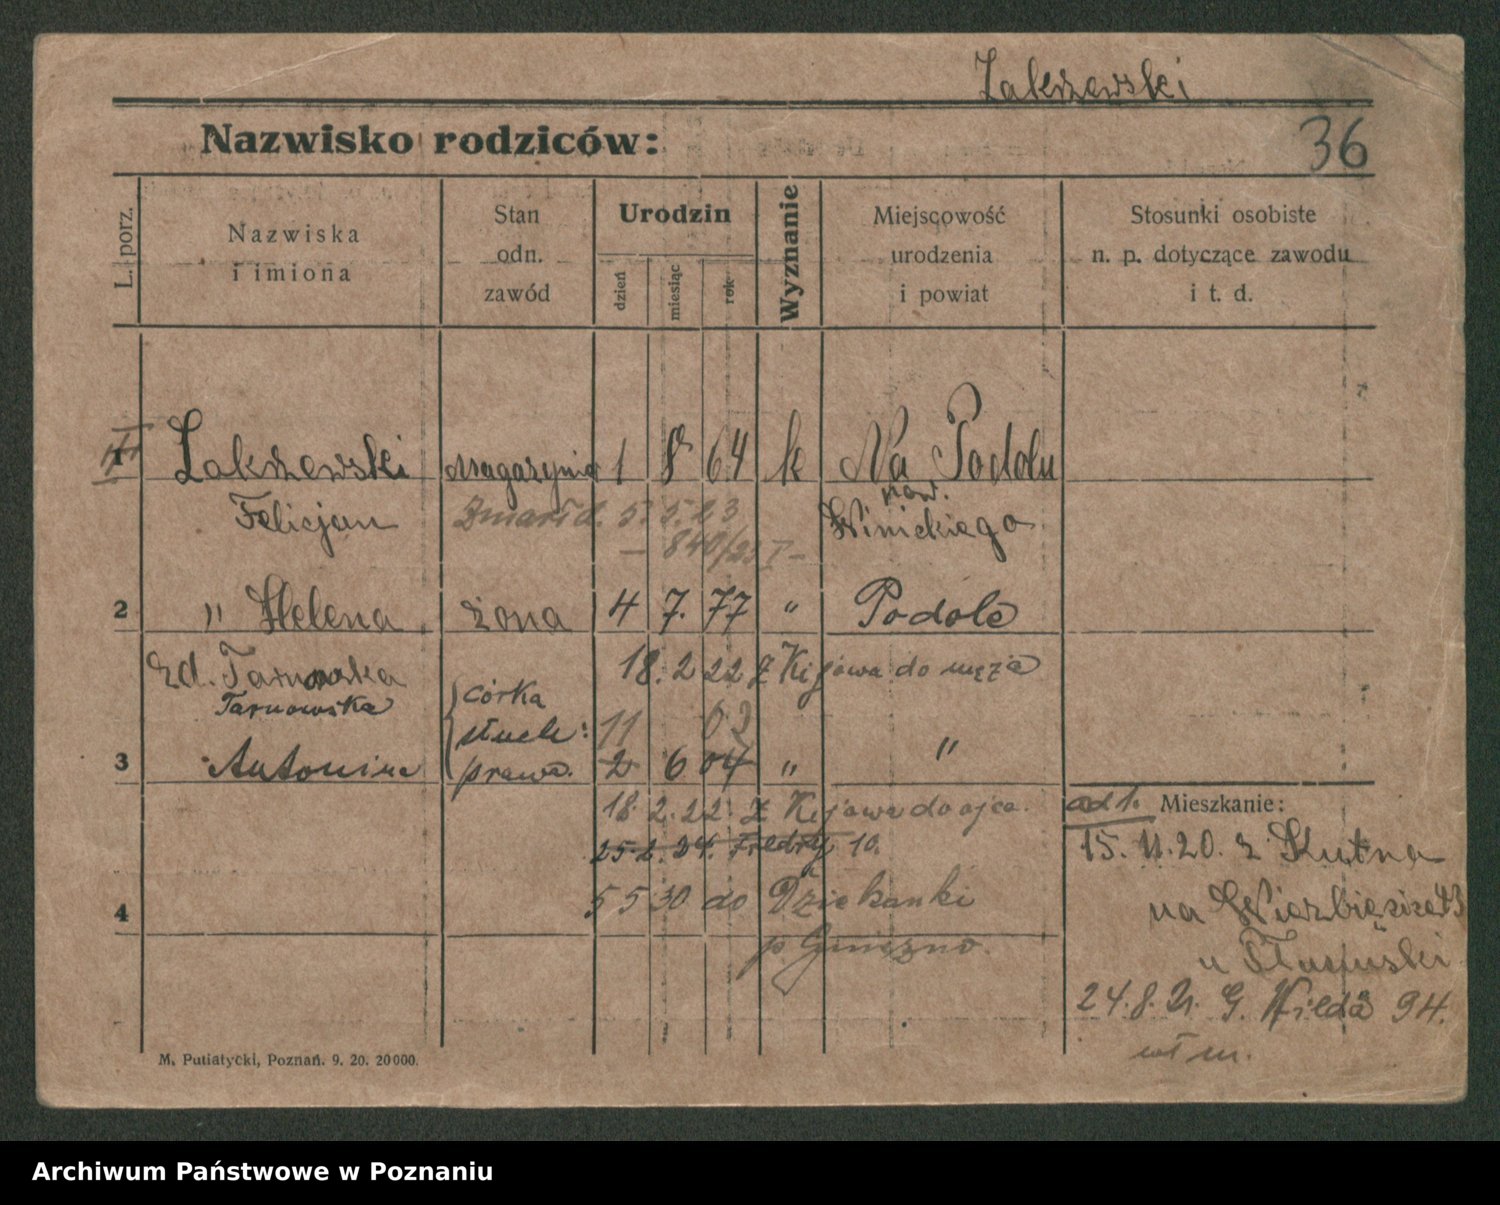 Zakrzewski
Nazwisko rodziców:
36
L. porz.
Nazwiska
i imiona
Stan
odn.
zawód
Urodzin
dzień
miesiąc
rok
Wyznanie
Miejscowość
urodzenia
i powiat
Stosunki osobiste
n. p. dotyczące zawodu
i t. d.
1 Zakrzewski Magazynier 1 8 64 k Na Podolu
Felicjan Zmarł d. 5. 5. 23 pow. Winickiego
— 840/23 I —
2 " Helena żona 4 7. 77 " Podole
zd. Tarnowska 18. 2 22 z Kijowa do męża
Tarnowska córka
słuch: 11 02
3 Antonina prawa. 2 6 04 " "
18. 2. 22. z Kijowa do ojca.
25. 2. 24. Fredry 10.
4 5 5 30 do Dziekanki
p Gniezno.
ad 1. Mieszkanie:
15. 11. 20. z Kutna
na Wierzbięcice
u
24. 8. 21. G. Wilda 94.
wł m.
M. Putiatycki, Poznań. 9. 20. 20000.
Archiwum Państwowe w Poznaniu